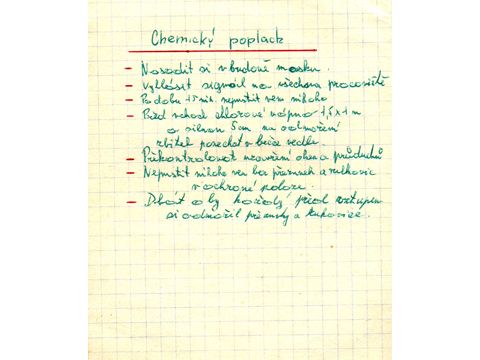 Chemický poplach
- Nasadit si v budově masku.
- Vyhlásit signál na všechna pracoviště
- Po dobu 15 min. nepustit ven nikoho
- Před vchod chlorové vápno 1,5 x 1 m
a silnou 5cm na odmoření
zbytek ponechat v vedle.
- Překontrolovat neotvírání oken a průduchů
- Nepustit nikoho ven bez přezuvek a rukavic
v ochranné poloze.
- Dbát aby každý před vstupem
si odmořil přezuvky a rukavice.